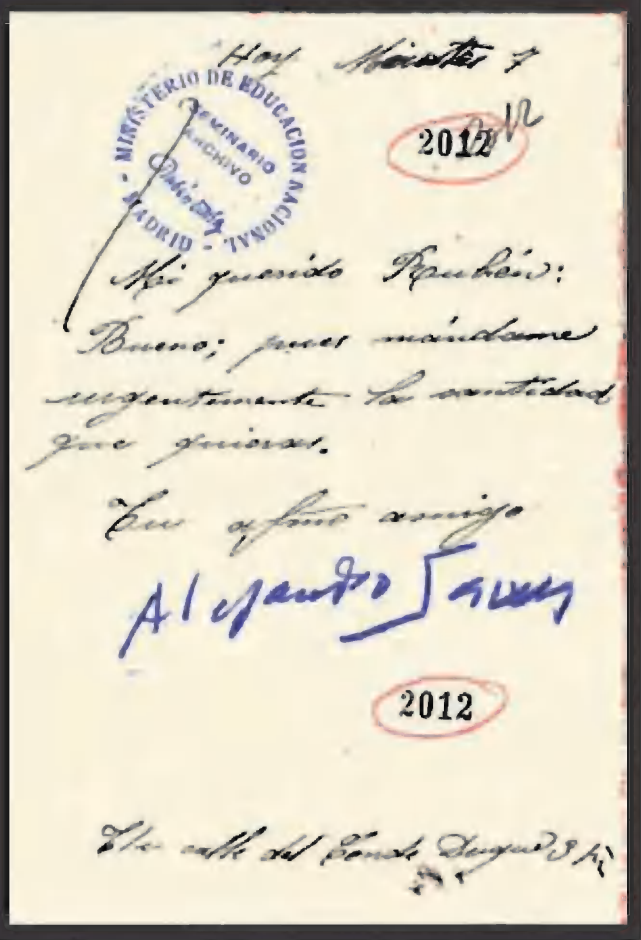 Hoy Martes 7
MINISTERIO DE EDUCACION NACIONAL
- MADRID -
SEMINARIO
ARCHIVO
Rubén Darío
2012
Mi querido Rubén:
Bueno; pues mándame
urgentemente la cantidad
que quieras.
Tu afmo amigo
Alejandro Sawa
2012
calle del Conde Duque